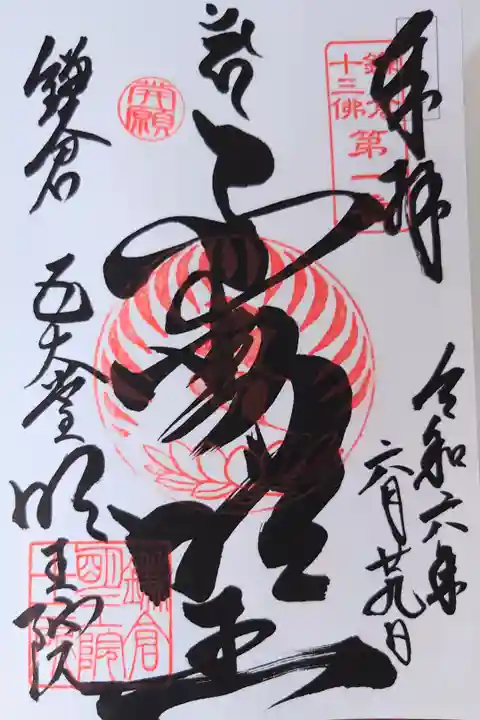 奉拝
鎌倉
十三佛
第一
令和六年
六月廿九日
不動明王
開願
鎌倉
五大堂
明王院
鎌倉
明王院